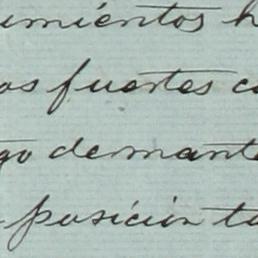 umientos h
os fuertes co
go demante
posición ta